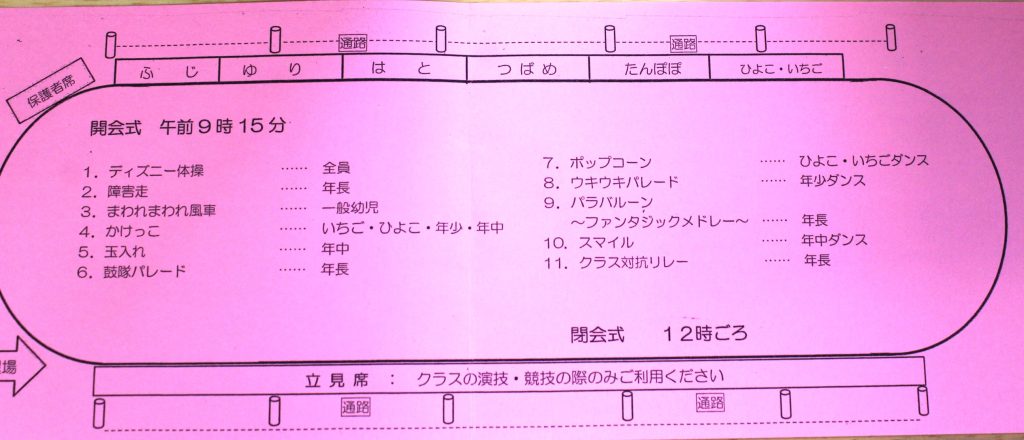 通路 通路
ふじ ゆり はと つばめ たんぽぽ ひよこ・いちご
保護者席
開会式 午前9時15分
1. ディズニー体操 …… 全員
2. 障害走 …… 年長
3. まわれまわれ風車 …… 一般幼児
4. かけっこ …… いちご・ひよこ・年少・年中
5. 玉入れ …… 年中
6. 鼓隊パレード …… 年長
7. ポップコーン …… ひよこ・いちごダンス
8. ウキウキパレード …… 年少ダンス
9. パラバルーン
～ファンタジックメドレー～ …… 年長
10. スマイル …… 年中ダンス
11. クラス対抗リレー …… 年長
閉会式 12時ごろ
場
立見席 : クラスの演技・競技の際のみご利用ください
通路 通路